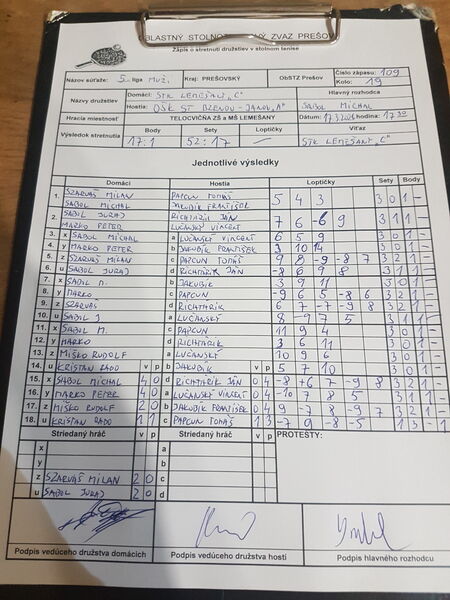 OBLASTNÝ STOLNOTENISOVÝ ZVAZ PREŠOV
Zápis o stretnutí družstiev v stolnom tenise
Názov súťaže: 5. liga MUŽI Kraj: PREŠOVSKÝ ObSTZ Prešov Číslo zápasu: 109
Kolo: 19
Názov družstva Domáci: STK LEMEŠANY "C" Hlavný rozhodca
Hostia: OŠK ST BZENOV - JANOV "A" SABOL MICHAL
Hracia miestnosť TELOCVIČNA ZŠ a MŠ LEMEŠANY Dátum: hodina: 17 30
Výsledok stretnutia Body Sety Loptičky Víťaz
17:1 52:17 STK LEMEŠANY "C"
Jednotlivé výsledky
Domáci Hostia Loptičky Sety Body
1. SZARVAŠ MILAN PAPCUN TOMÁŠ 5 4 3 3 0 1 -
SABOL MICHAL JAKUBÍK FRANTIŠEK
2. SABOL JURAJ RICHTÁRIK JÁN 7 6 -6 9 3 1 1 -
MARKO PETER LUČANSKÝ VINCENT
3. x SABOL MICHAL a LUČANSKÝ VINCENT 6 5 9 3 0 1 -
4. y MARKO PETER b JAKUBÍK FRANTIŠEK 2 10 14 3 0 1 -
5. z SZARVAŠ MILAN c PAPCUN TOMÁŠ 9 8 -9 -8 7 3 2 1 -
6. u SABOL JURAJ d RICHTÁRIK JÁN -8 6 9 8 3 1 1 -
7. x SABOL M. b JAKUBÍK 3 9 11 3 0 1 -
8. y MARKO c PAPCUN -9 6 5 -8 6 3 2 1 -
9. z SZARVAŠ d RICHTÁRIK 6 7 -7 -9 8 3 2 1 -
10. u SABOL J a LUČANSKÝ 8 -9 7 5 3 1 1 -
11. x SABOL M. c PAPCUN 11 9 4 3 0 1 -
12. y MARKO d RICHTÁRIK 3 6 11 3 0 1 -
13. z MIŠKO RUDOLF a LUČANSKÝ 10 9 6 3 0 1 -
14. u KRIŠTAN RADO v p b JAKUBÍK v p 5 7 10 3 0 1 -
15. x SABOL MICHAL 4 0 d RICHTÁRIK JÁN 0 4 -8 +6 7 -9 8 3 2 1 -
16. y MARKO PETER 4 0 a LUČANSKÝ VINCENT 0 4 -10 7 8 5 3 1 1 -
17. z MIŠKO RUDOLF 2 0 b JAKUBÍK FRANTIŠEK 0 4 9 -7 8 -9 7 3 2 1 -
18. u KRIŠTAN RADO 1 1 c PAPCUN TOMÁŠ 1 3 -7 9 -8 -5 1 3 - 1
Striedaný hráč v p Striedaný hráč v p PROTESTY:
x a
y b
z SZARVAŠ MILAN 2 0 c
u SABOL JURAJ 2 0 d
Podpis vedúceho družstva domácich Podpis vedúceho družstva hostí Podpis hlavného rozhodcu